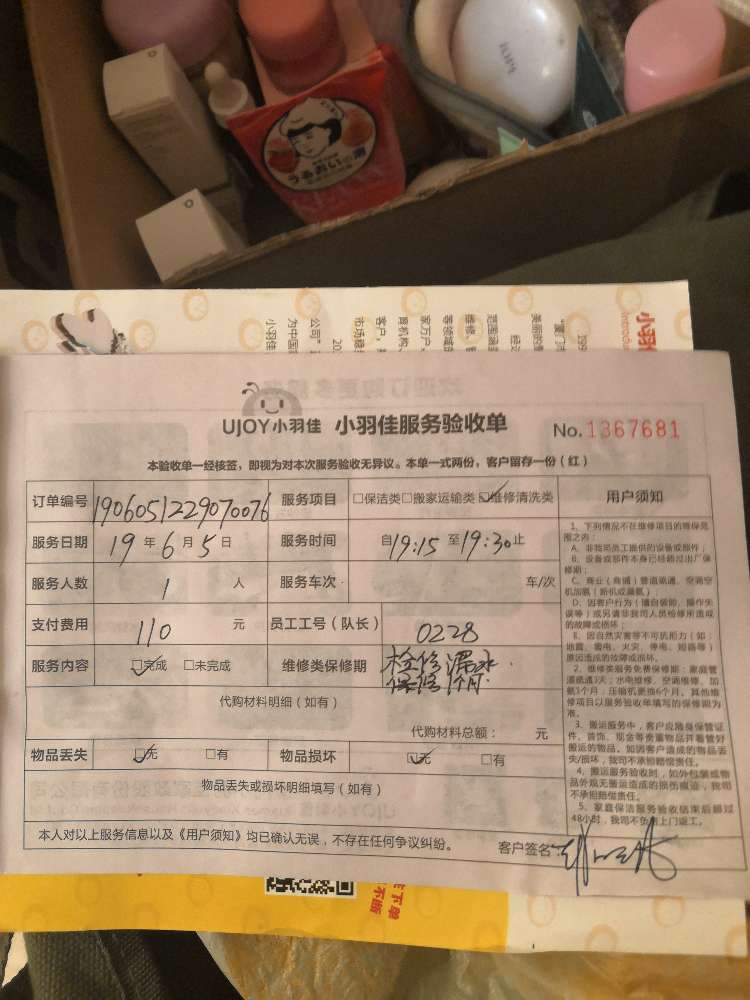 うるおいの源
UJOY小羽佳 小羽佳服务验收单 No.1367681
本验收单一经核签，即视为对本次服务验收无异议。本单一式两份，客户留存一份（红）
订单编号 1906051229070076 服务项目 □保洁类□搬家运输类☑维修清洗类 用户须知
服务日期 19年6月5日 服务时间 自19:15至19:30止
服务人数 1 人 服务车次 车/次
支付费用 110 元 员工工号（队长） 0228
服务内容 ☑完成 □未完成 维修类保修期 检修漏水
保修1个月
代购材料明细（如有）
代购材料总额： 元
物品丢失 ☑无 □有 物品损坏 ☑无 □有
物品丢失或损坏明细填写（如有）
本人对以上服务信息以及《用户须知》均已确认无误，不存在任何争议纠纷。 客户签名：
1、下列情况不在维修项目的维保范
围之内：
A、非我司员工提供的设备或部件；
B、设备或部件本身已经超过出厂保
修期；
C、商业（商场）管道疏通、空调空
机加氨（新机或漏氨）；
D、因客户行为（请自装卸、操作失
误等）或另请非我司人员检修所造成
的故障或损坏；
E、因自然灾害等不可抗拒力（如：
地震、雷电、火灾、停电、短路等）
原因造成的故障或损坏。
2、维修类服务免费保修期：家庭管
道疏通3天；水电维修、空调维修、加
氨1个月；压缩机更换6个月。其他维
修项目以服务验收单填写的保修期为
准。
3、搬运服务中，客户应随身保管证
件、首饰、现金等贵重物品并看管好
搬运的物品。如因客户造成的物品丢
失/损坏，我司不承担赔偿责任。
4、搬运服务验收时，如外包装或物
品外观无搬运造成的损伤痕迹，我司
不承担赔偿责任。
5、家庭保洁服务验收结束后超过
48小时，我司不负责上门返工。